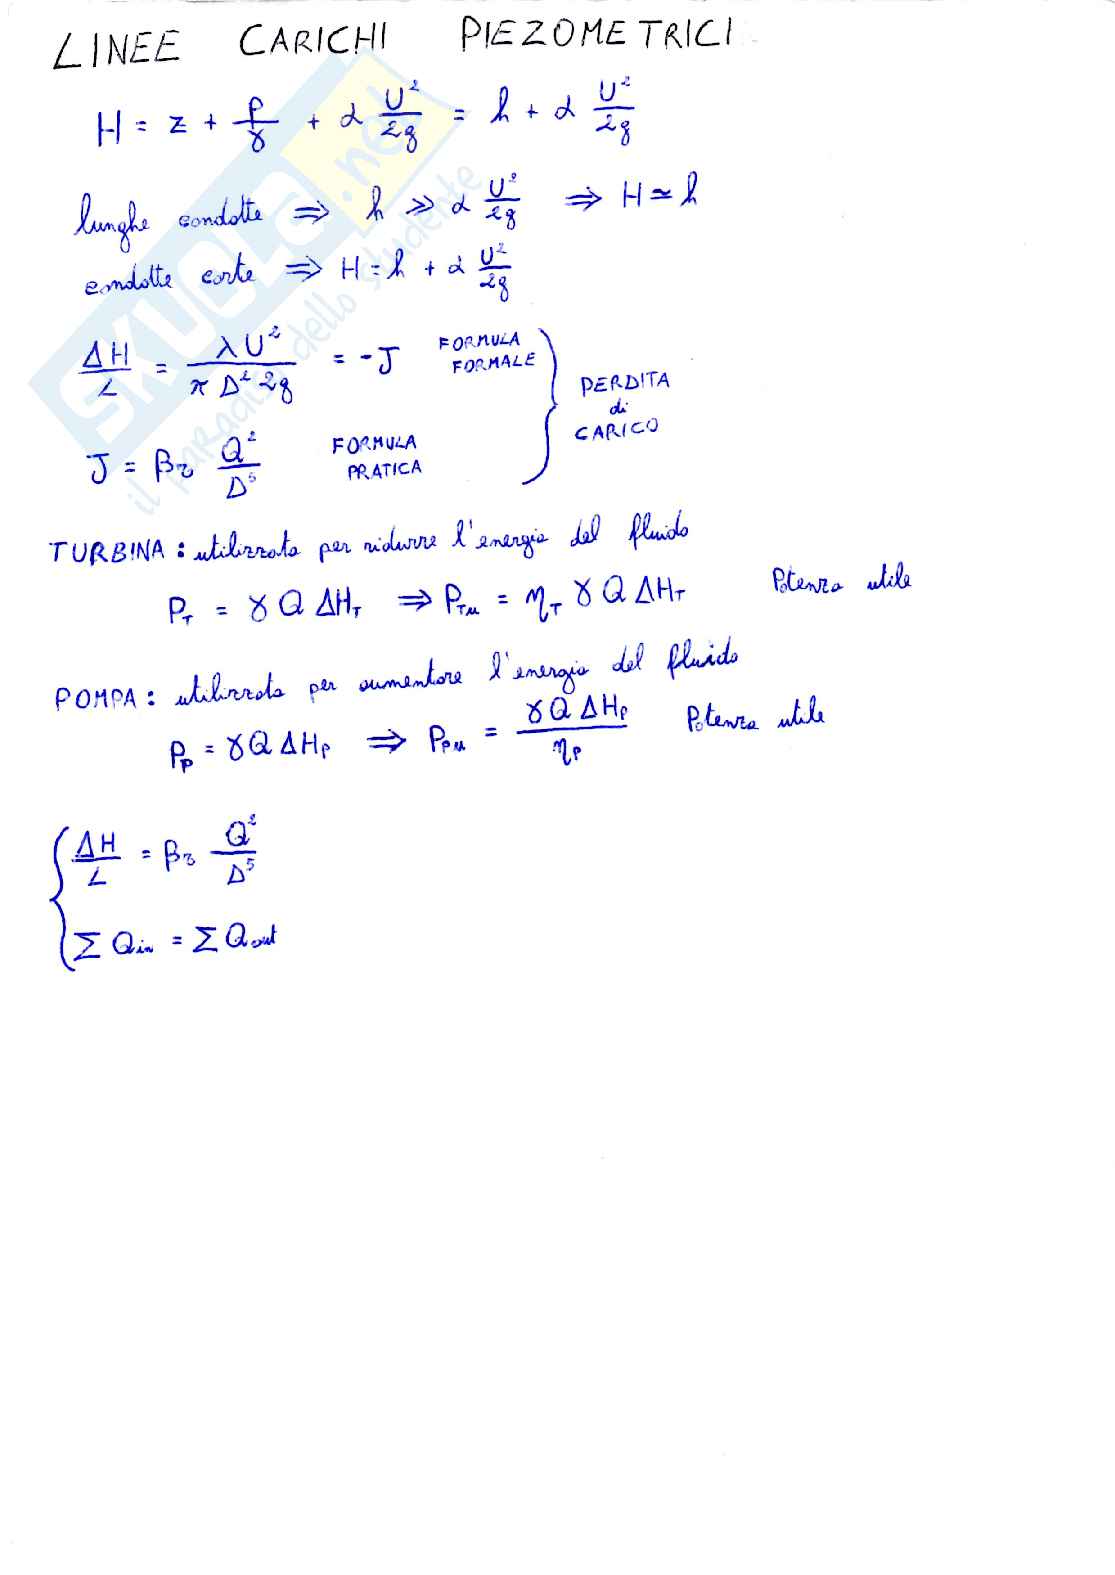 LINEE CARICHI PIEZOMETRICI
H = z + p/γ + α U²/2g = h + α U²/2g
lunghe condotte ⇒ h ≫ α U²/2g ⇒ H ≃ h
condotte corte ⇒ H = h + α U²/2g
ΔH/L = λU²/πD²2g = -J FORMULA FORMALE
J = βr Q²/D⁵ FORMULA PRATICA
PERDITA di CARICO
TURBINA: utilizzata per ridurre l'energia del fluido
P_T = γ Q ΔH_T ⇒ P_Tu = η_T γ Q ΔH_T Potenza utile
POMPA: utilizzata per aumentare l'energia del fluido
P_P = γ Q ΔH_P ⇒ P_Pu = γ Q ΔH_P/η_P Potenza utile
ΔH/L = βr Q²/D⁵
Σ Qin = Σ Qout
SKUOLA.net
il paradiso dello studente